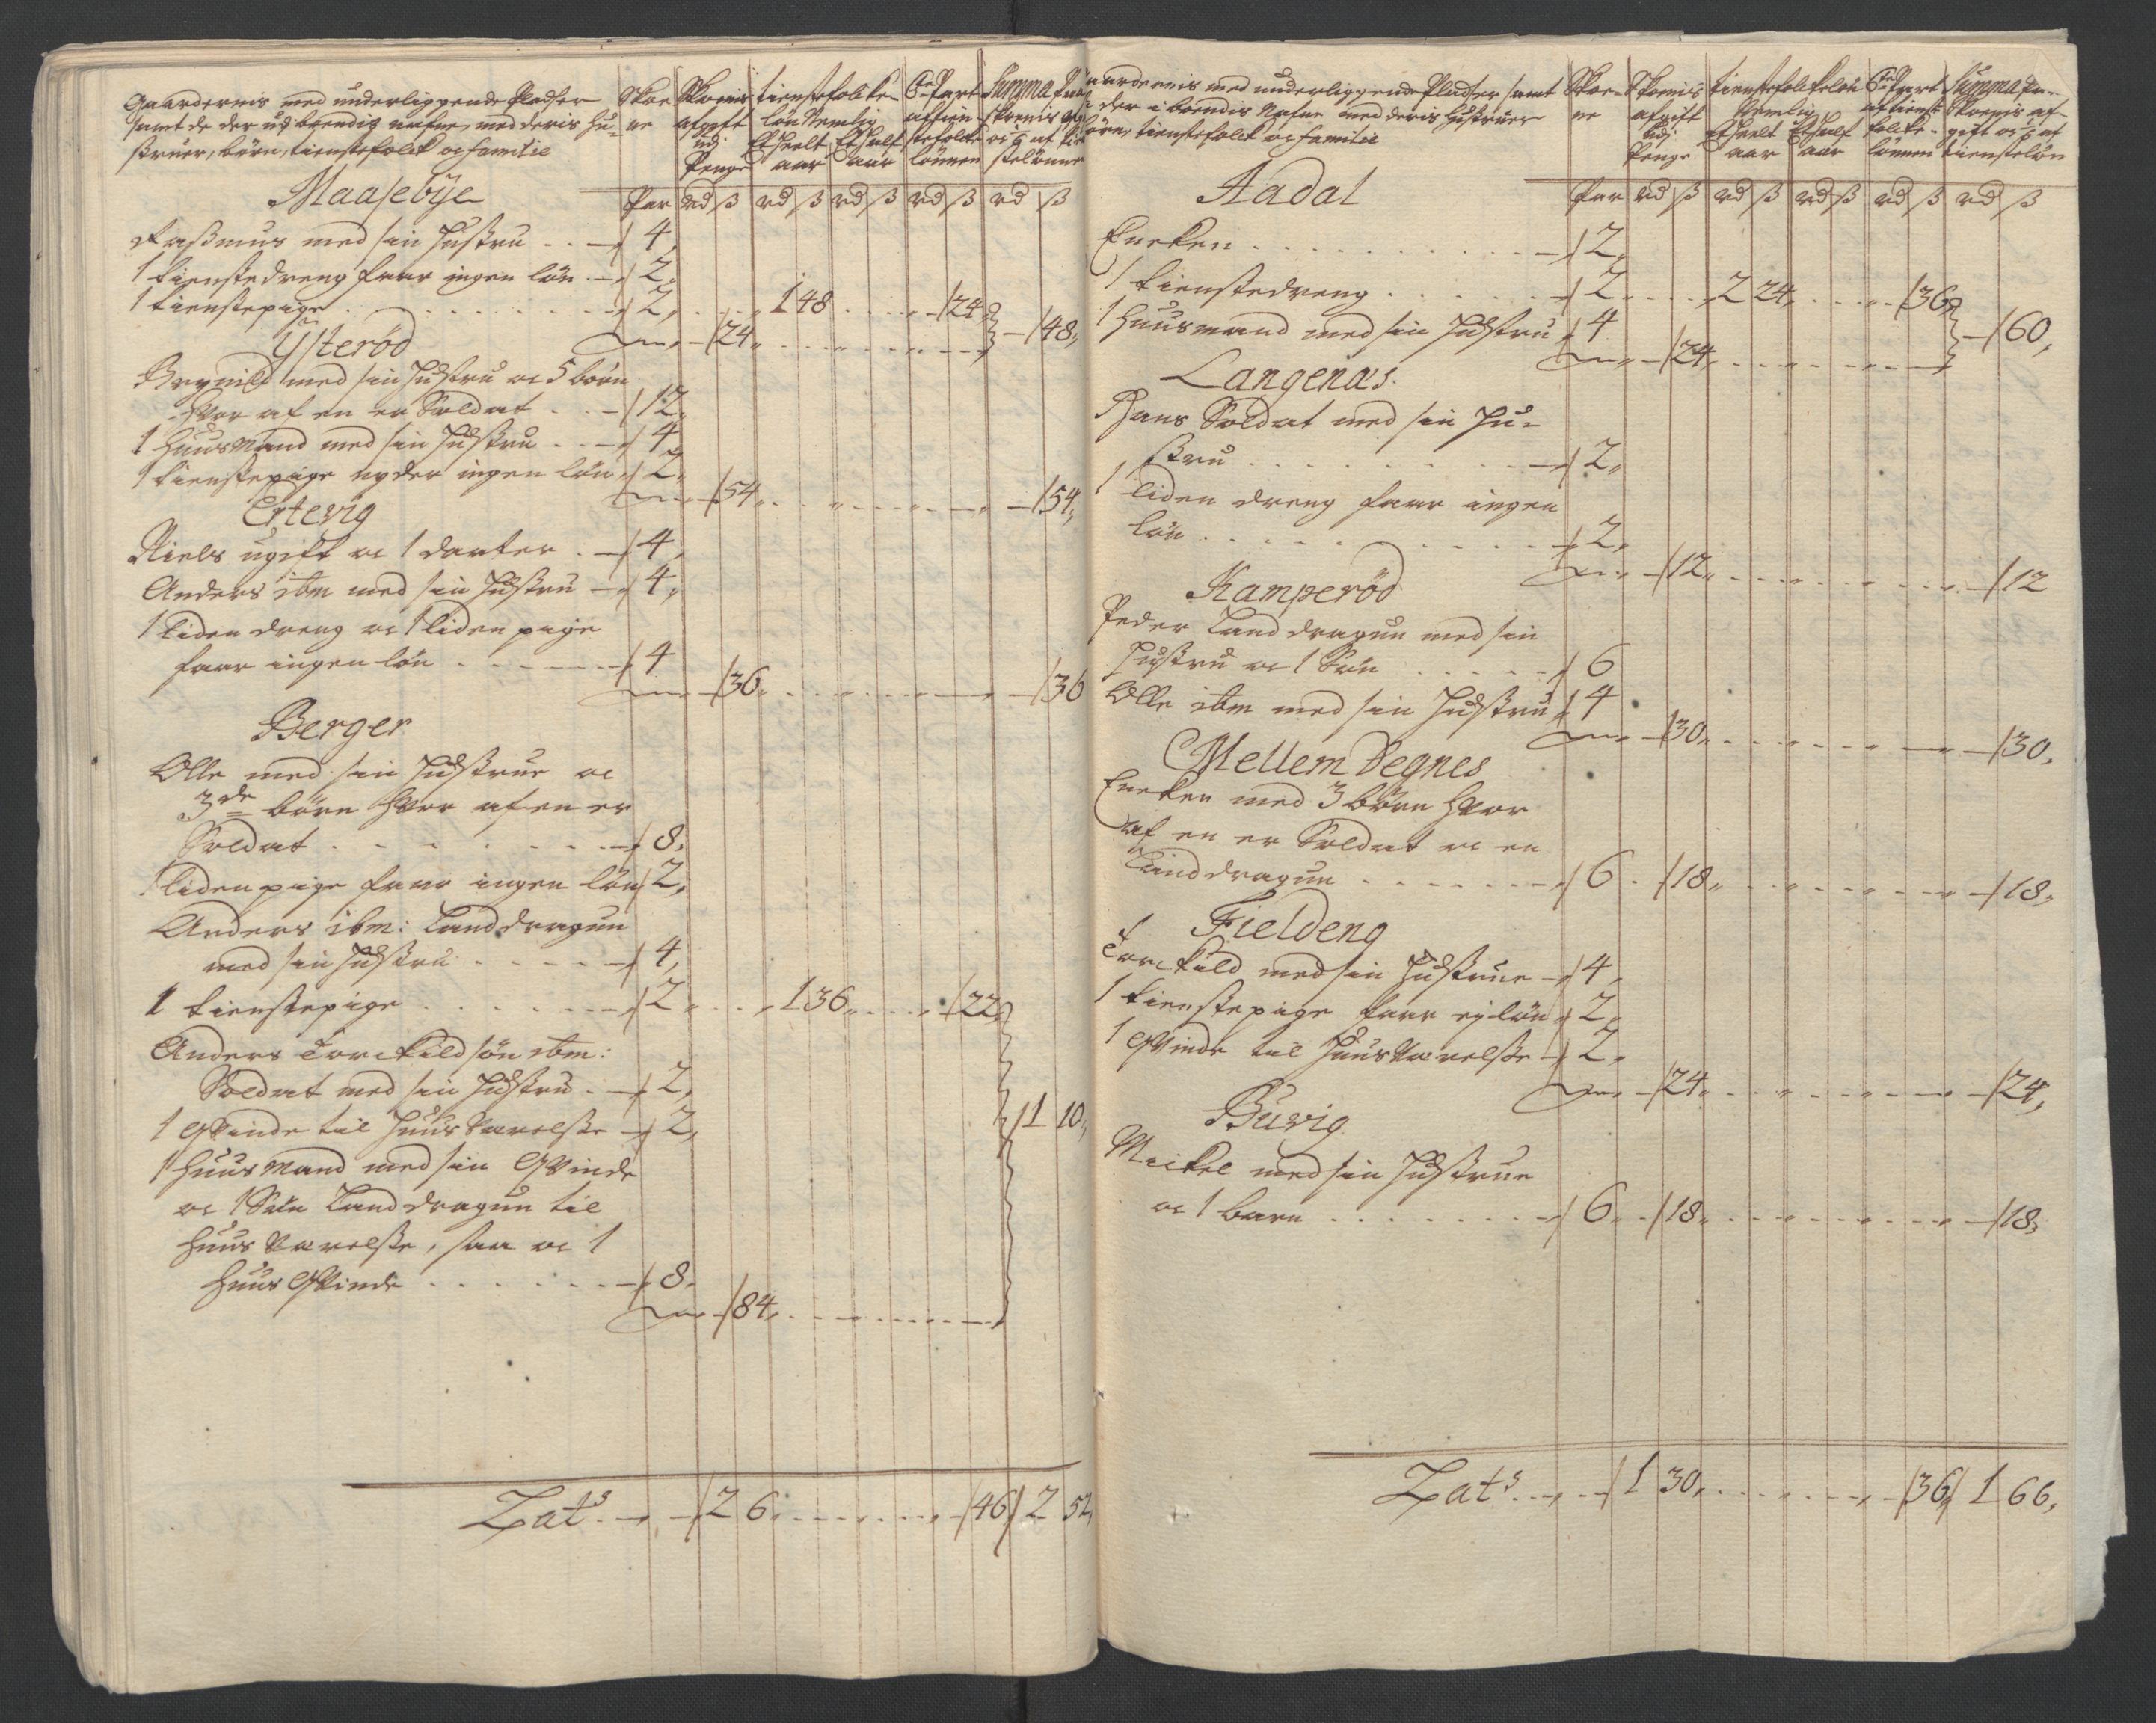 Gaardernis med underliggende Pladser
samt de der u@ boendis nafne, med deris Hu-
struer, börn, tienstefolck oc familie
Skoe
ne
Skoenis
afgift
udj
Penge
tienstefolcke-
lön Nemlig
Et heelt
aar
Et half
aar
6te Part
af tien
stefolcke
lönnen
Summa
Skoenis
oc 1/6 af
stelönne
Par rd ß rd ß rd ß rd ß rd ß
Maasebÿe
Rasmus med sin Hustru . . 4,
1 tienstedreng faar ingen lön . 2,
1 tienstepige . . . 2, . . 1 48 . . 24,
24, . . . 48,
Ÿsterød
Brynild med sin Hustru oc 5 börn
Hvor af en er Soldat . . 12,
1 Huusmand med sin Hustru . . 4,
1 tienstepige nyder ingen lön 2,
54, . . . 54,
Ertevig
Niels ugift oc 1 daater . 4,
Anders ibm med sin Hustru 4,
1 liden dreng oc 1 liden pige
faar ingen lön . . . 4
36, . . . 36
Berger
Olle med sin Hustrue oc
3de börn Hvor af en er
Soldat . . . 8,
1 liden pige faar ingen lön 2,
Anders ibm: Landdragun
med sin Hustru . . . 4,
1 tienstepige . . . 2, . . 1 36, . . 22,
Anders Torckildsön ibm:
Soldat med sin Hustru . 2,
1 Qvinde til Huus Værelse 2,
1 10,
1 Huusmand med sin Qvinde
oc 1 Sön Landdragun til
Huus Værelse, saa oc 1
Huus Qvinde . . . 8,
84, . . .
Lats . . 2 6, . . . 46 2 52,
Gaardernis med underliggende Pladser samt
de der iboendis Nafne med deris Hustruer
börn, tienstefolck oc familie
Skoe-
ne
Skoenis
afgift
udj
Penge
tienstefolckelön
Nemlig
Et heelt
aar
Et half
aar
6te Part
af tienste
folcke-
lönnen
Summa Paa
Skoenis af-
gift oc 1/6 af
tienstelön
Par rd ß rd ß rd ß rd ß rd ß
Aadal
Encken . . . 2,
1 tienstedreng . . . 2, . . 2 24, . . 36,
1 Huusmand med sin Hustru 4
24, . . . 60,
Langenæs.
Hans Soldat med sin Hu-
stru . . . 2,
1 liden dreng faar ingen
lön . . . 2,
12, . . . 12
Kamperöd
Peder Landdragun med sin
Hustru oc 1 Sön . . . 6
Olle ibm med sin Hustru 4
30, . . . 30,
Mellem Degnes
Encken med 3 börn Hvor
af en er Soldat oc en
Landdragun . . . 6 . 18, . . . 18,
Fieldeng
Torckild med sin Hustrue 4,
1 tienstepige faar ej lön 2,
1 Qvinde til Huus Værelse 2,
24, . . . 24,
Buvig
Mickel med sin Hustrue
oc 1 barn . . . 6, . 18, . . . 18,
Lats . . 1 30, . . . 36, 1 66,